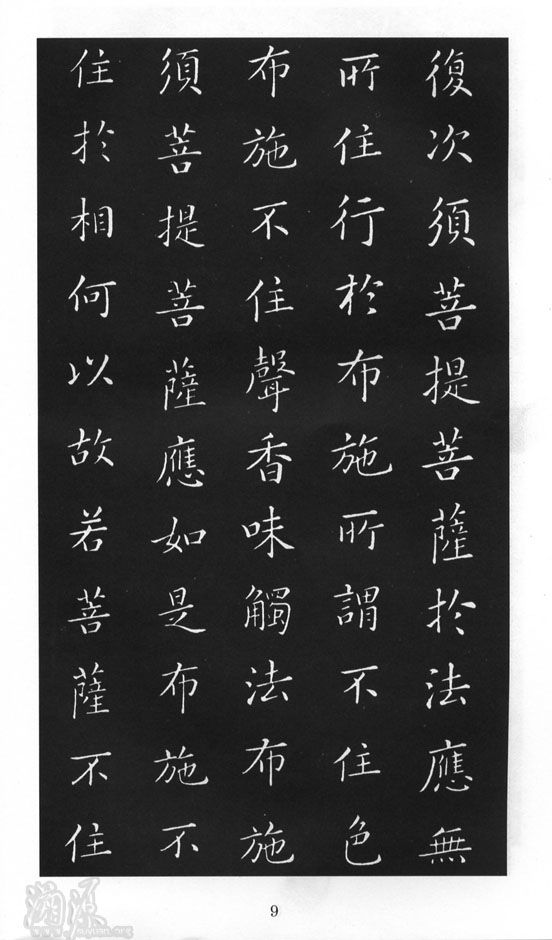 復次須菩提菩薩於法應無
所住行於布施所謂不住色
布施不住聲香味觸法布施
須菩提菩薩應如是布施不
住於相何以故若菩薩不住
9
www.suyuan.org